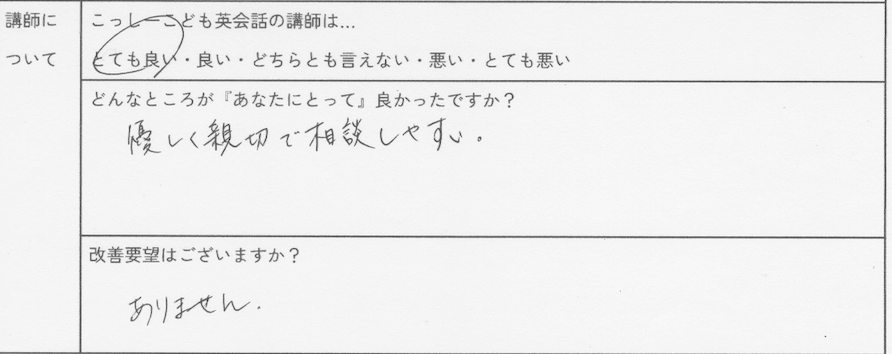 講師に
ついて
こっしーこども英会話の講師は…
とても良い・良い・どちらとも言えない・悪い・とても悪い
どんなところが『あなたにとって』良かったですか？
優しく親切で相談しやすい。
改善要望はございますか？
ありません.